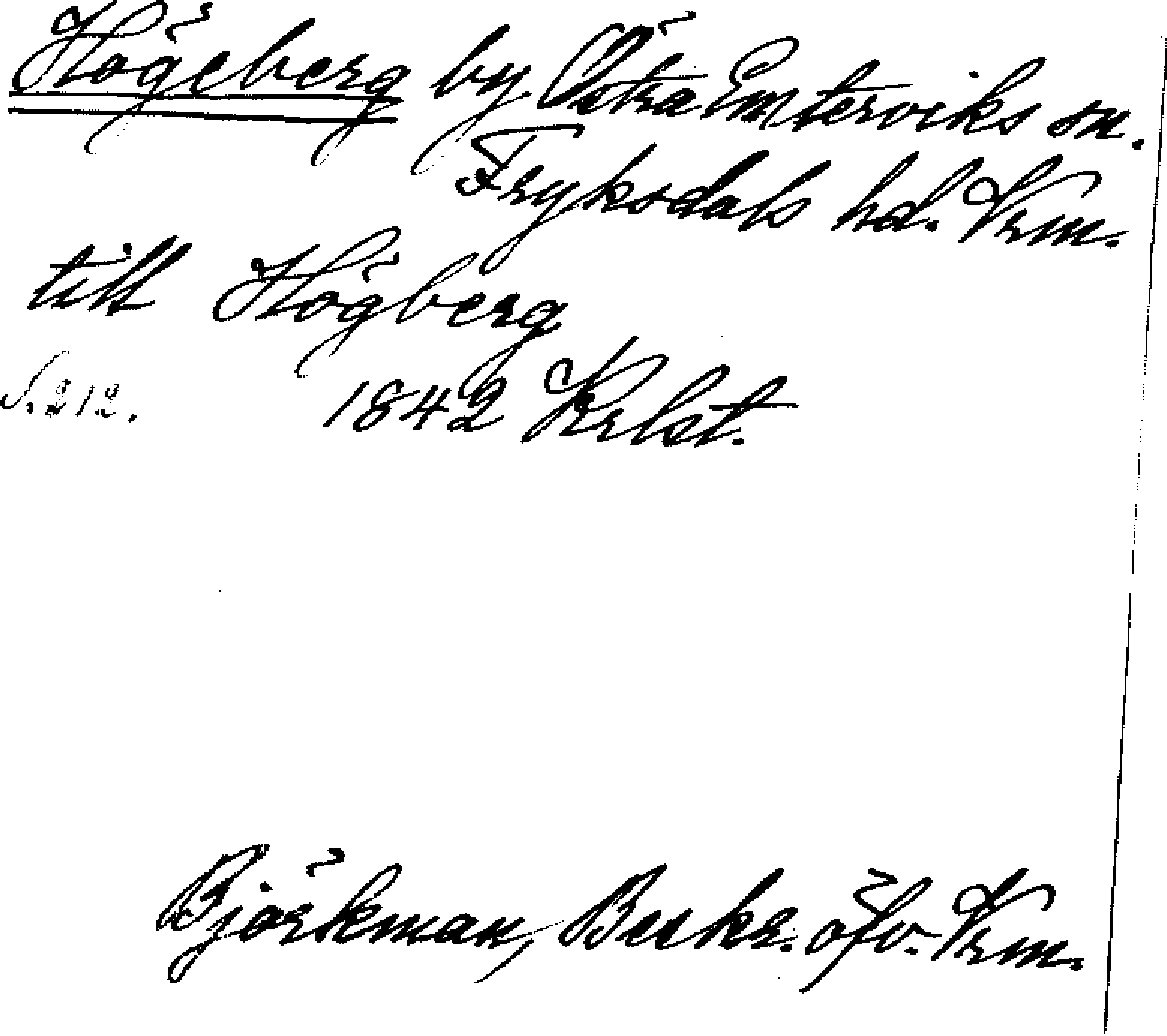 Högeberg by. Östra Emterviks sn.
Fryksdals hd. Vrm.
till Högberg
S. 212. 1842 Krlst.
Björkman, Beskr. öfv. Vrm.